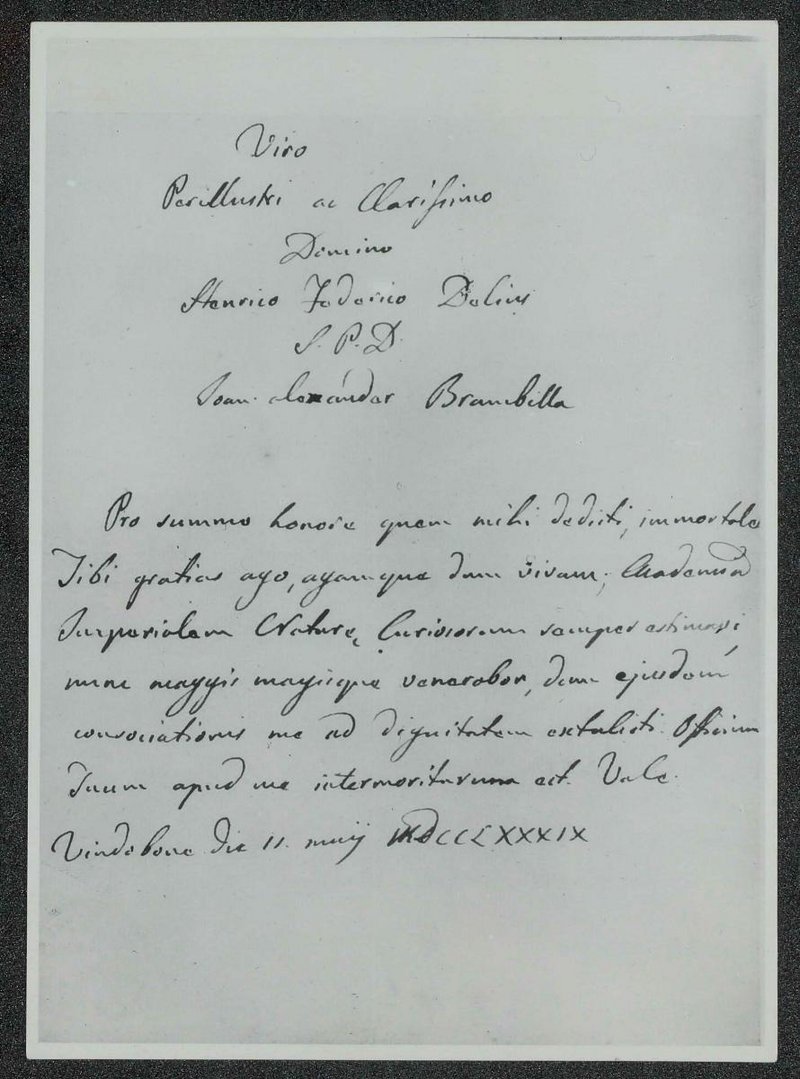 Viro
Perillustri ac Clarissimo
Domino
Henrico Federico Delius
S. P. D.
Joan. alexander Brambilla
Pro summo honore quem mihi dedisti, immortales
Tibi gratias ago, agamque dum vivam; Academiam
Imperialem Naturę Curiosorum semper estimavi,
nunc maggis magisque venerabor, dum ejusdem
consociationis me ad dignitatem extulisti. Officium
Tuum apud me intermoriturum est. Vale.
Vindobone die 11. maij MDCCLXXXIX